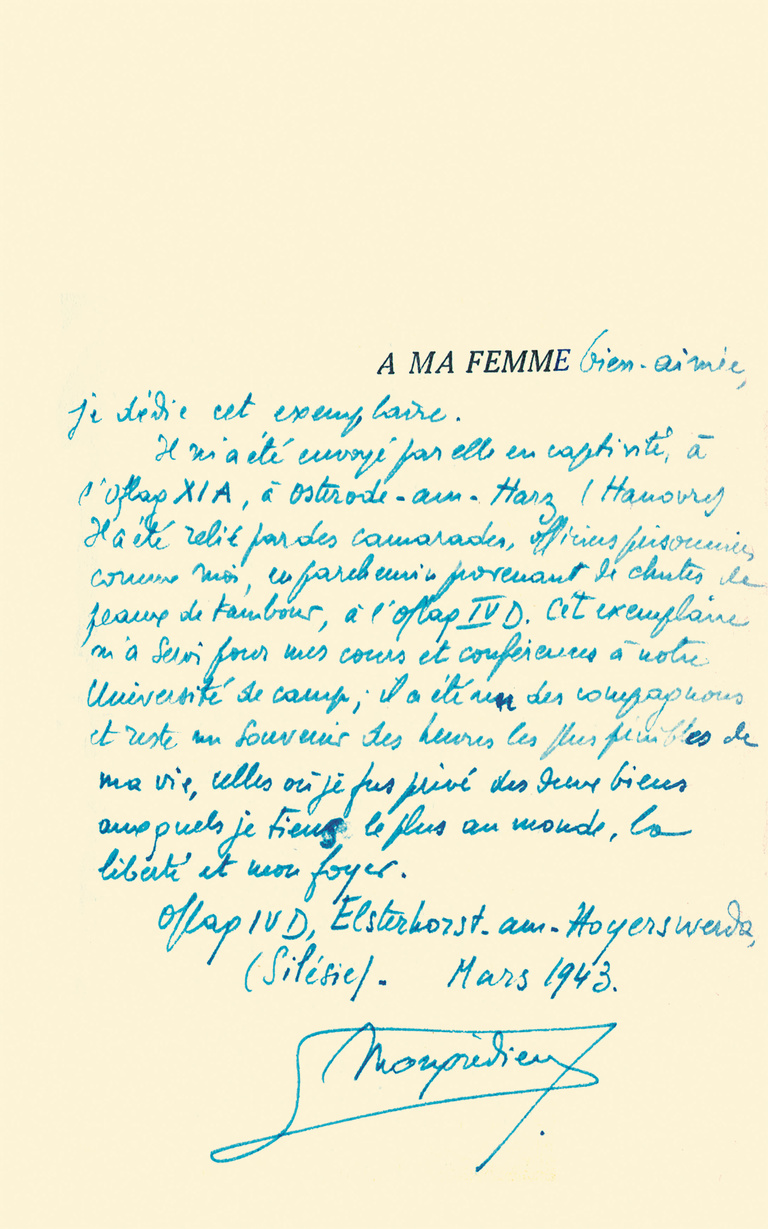 A MA FEMME bien-aimée,
je dédie cet exemplaire.
Il m'a été envoyé par elle en captivité, à
l'Oflag XIA, à Osterode-am-Harz (Hanovre)
Il a été relié par des camarades, officiers prisonniers
comme moi, en parchemin provenant de chutes de
peaux de tambour, à l'Oflag IV D. Cet exemplaire
m'a servi pour mes cours et conférences à notre
Université de camp; il a été un des compagnons
et reste un souvenir des heures les plus pénibles de
ma vie, celles où je fus privé des deux biens
auxquels je tiens le plus au monde, la
liberté et mon foyer.
Oflag IV D, Elsterhorst-am-Hoyerswerda,
(Silésie). Mars 1943.